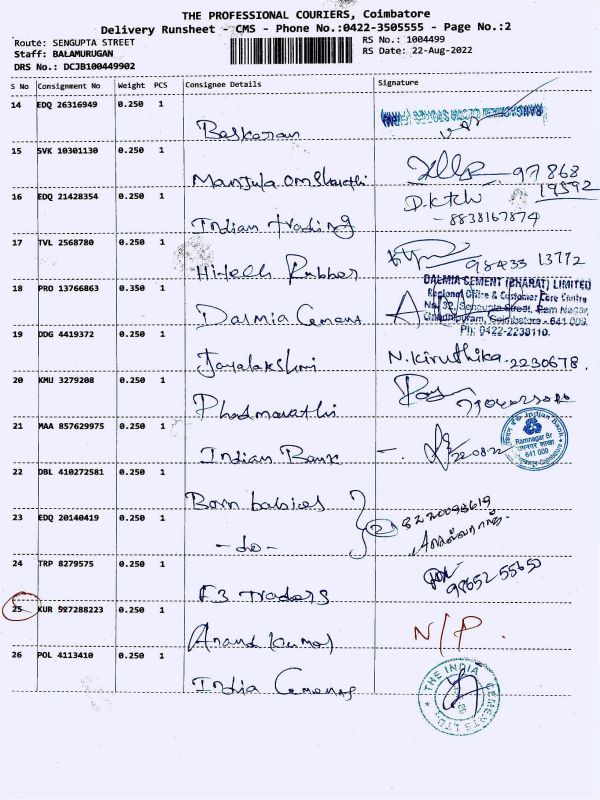 THE PROFESSIONAL COURIERS, Coimbatore
Delivery Runsheet - CMS - Phone No.:0422-3505555 - Page No.:2
Route: SENGUPTA STREET
RS No.: 1004499
Staff: BALAMURUGAN
RS Date: 22-Aug-2022
DRS No.: DCJB100449902
S No Consignment No Weight PCS Consignee Details Signature
14 EDQ 26316949 0.250 1
Baskaran
15 SVK 10301130 0.250 1
Manjula Omshakthi 97868
19592
16 EDQ 21428354 0.250 1
D.K
Indian trading - 8838167874
17 TVL 2568780 0.250 1
Hitech Rubber 98433 13772
18 PRO 13766863 0.350 1
DALMIA CEMENT (BHARAT) LIMITED
Regional Office & Customer Care Centre
No. 32, Sengupta Street, Ram Nagar,
Gandhipuram, Coimbatore - 641 009.
Ph: 0422-2238110.
Dalmia Cement
19 DDG 4419372 0.250 1
Jayalakshmi N.Kiruthika. 2230678.
20 KMU 3279208 0.250 1
Phadmavathi
21 MAA 857629975 0.250 1
Indian Bank
Indian Bank
Ramnagar Br
641 009
22 DBL 410272581 0.250 1
Born babies
8220093619
23 EDQ 20140419 0.250 1
- do - 2
24 TRP 8279575 0.250 1
98652 55650
F3 traders
25 KUR 527288223 0.250 1
Anand Kumar N/P.
26 POL 4113410 0.250 1
India Cements
THE INDIA CEMENTS LTD.